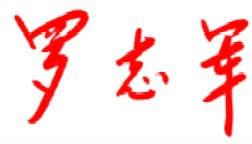 罗志军